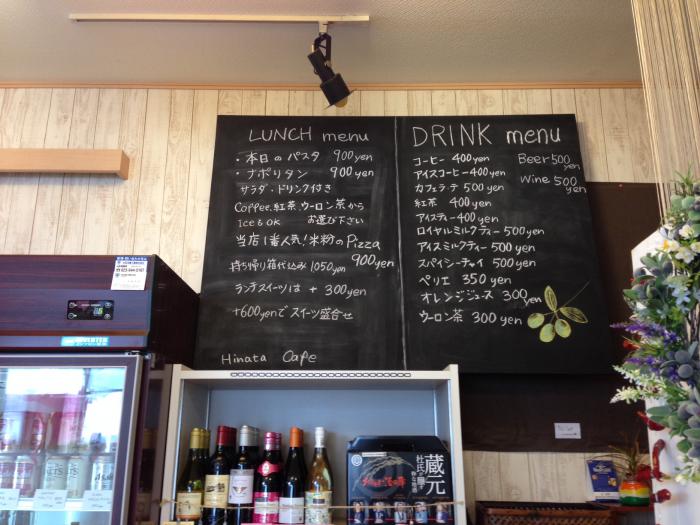 LUNCH menu
・本日のパスタ 900yen
・ナポリタン 900yen
サラダ・ドリンク付き
Coffee、紅茶、ウーロン茶から
Ice も OK お選び下さい
当店1番人気!米粉のPizza
900yen
持ち帰り箱代込み 1050yen
ランチスイーツは + 300yen
+600yenでスイーツ盛合せ
Hinata Cafe
DRINK menu
コーヒー 400yen
アイスコーヒー 400yen
カフェラテ 500yen
紅茶 400yen
アイスティー 400yen
ロイヤルミルクティー 500yen
アイスミルクティー 500yen
スパイシーチャイ 500yen
ペリエ 350yen
オレンジジュース 300yen
ウーロン茶 300yen
Beer 500yen
Wine 500yen
蔵元